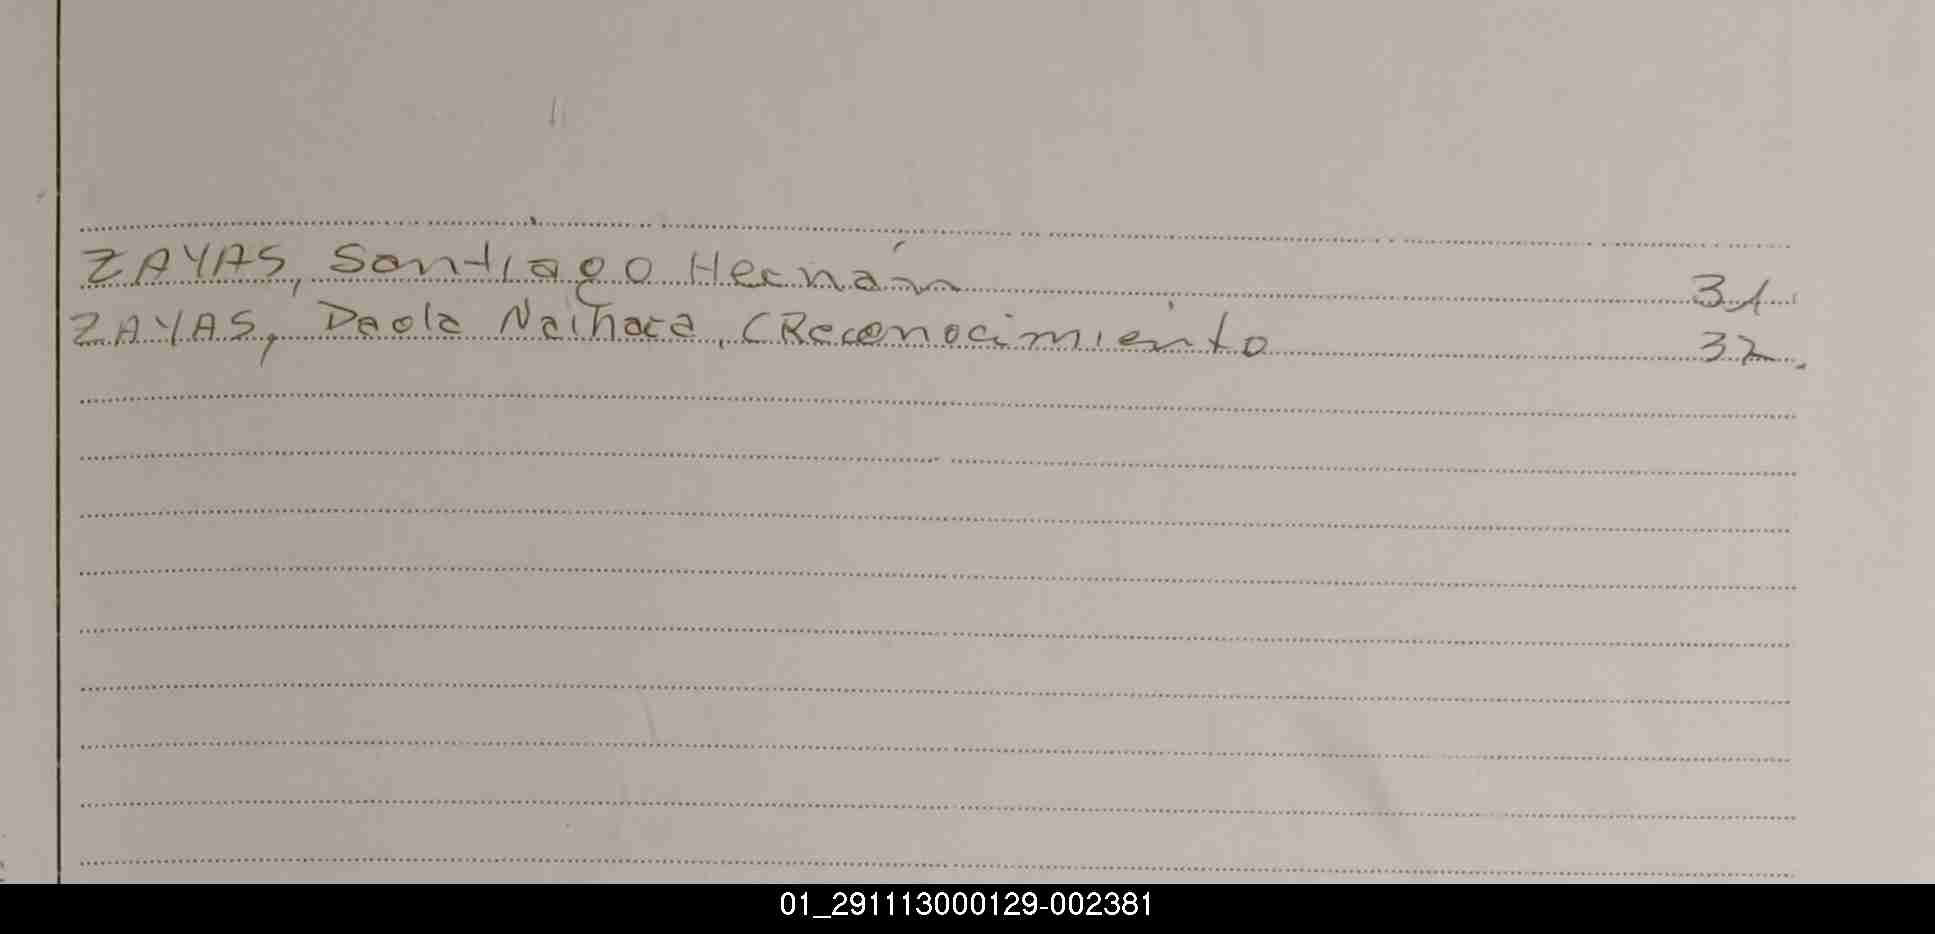 ZAYAS, Santiago Hernán 31
ZAYAS, Daola Naihara, (Reconocimiento 32
01_291113000129-002381